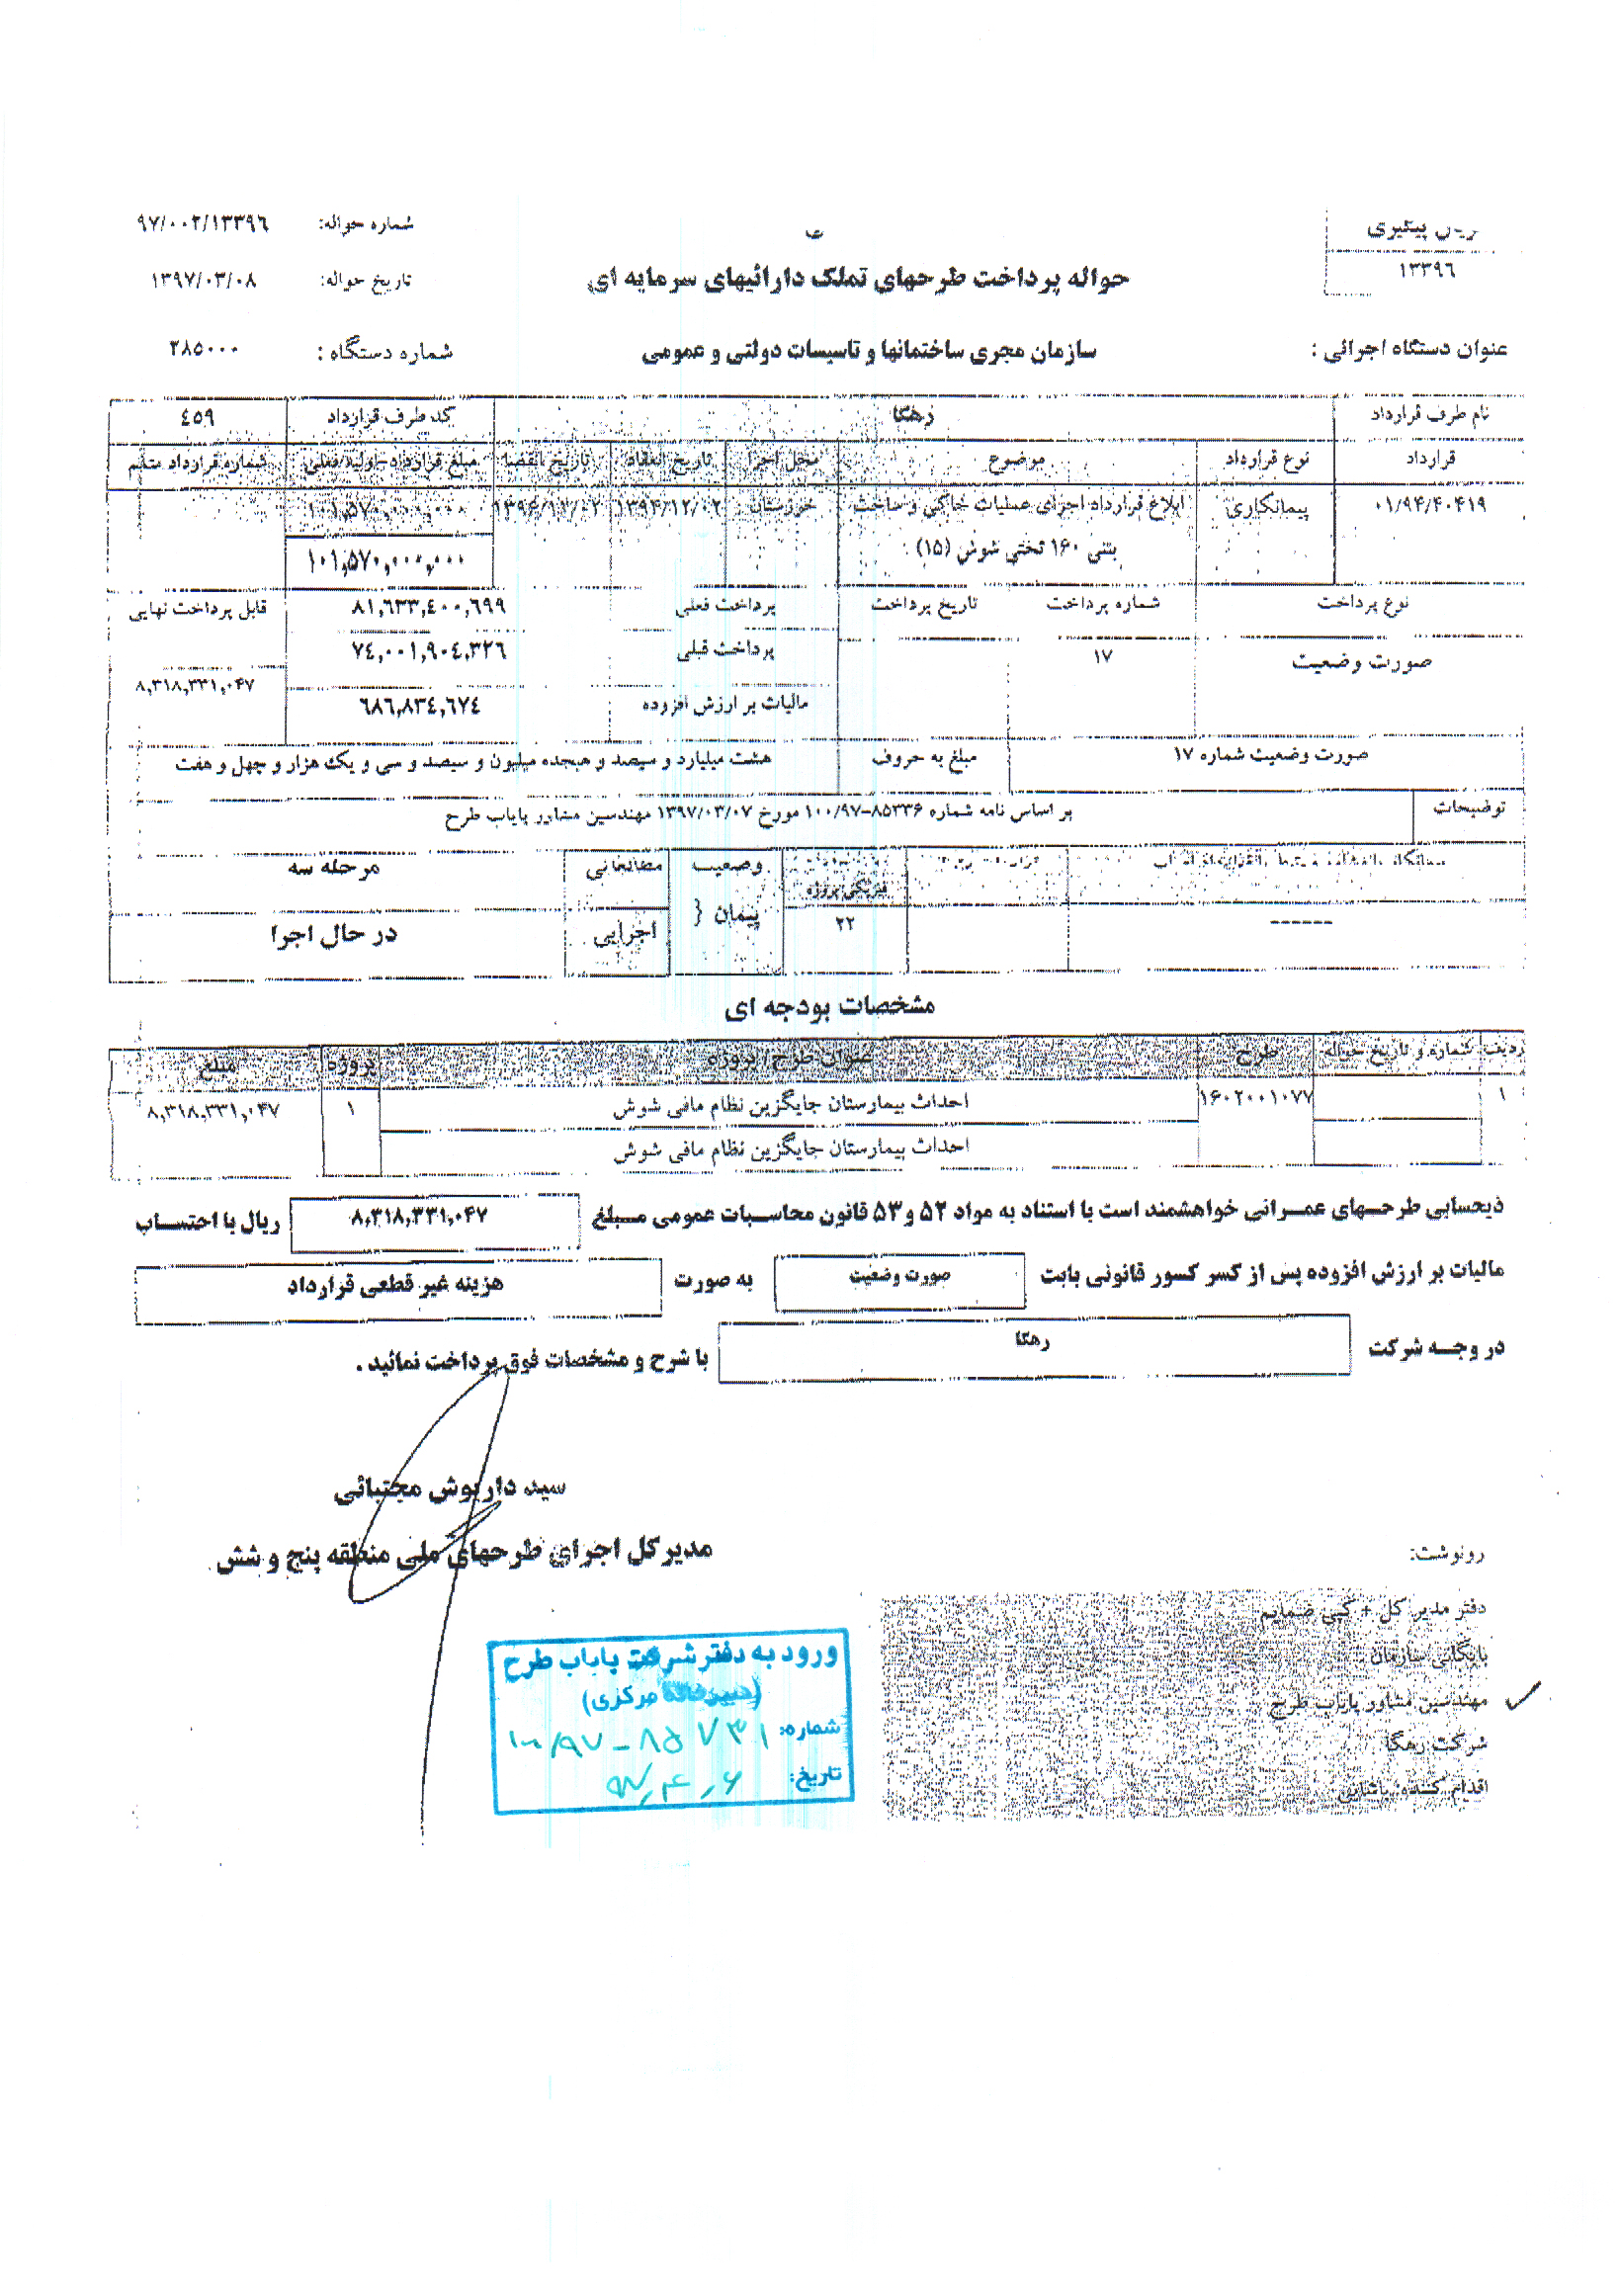 پیگیری
۱۳۳۹۶
شماره حواله: ۹۷/۰۰۲/۱۳۳۹۶
حواله پرداخت طرحهای تملک دارائیهای سرمایه ای
تاریخ حواله: ۱۳۹۷/۰۳/۰۸
عنوان دستگاه اجرائی : سازمان مجری ساختمانها و تاسیسات دولتی و عمومی شماره دستگاه : ۲۸۵۰۰۰
نام طرف قرارداد رهگا کد طرف قرارداد ٤٥٩
قرارداد نوع قرارداد موضوع محل اجرا تاریخ انعقاد تاریخ انقضا مبلغ قرارداد-اولیه/فعلی شماره قرارداد متمم
۰۱/۹۴/۴۰۴۱۹ پیمانکاری ابلاغ قرارداد اجرای عملیات خاکی و ساخت خوزستان ۱۳۹۴/۱۲/۰۲ ۱۳۹۶/۱۲/۰۲ ۱۰۱,۵۷۰,۰۰۰,۰۰۰
بتنی ۱۶۰ تختی شوش (۱۵) : ۱۰۱,۵۷۰,۰۰۰,۰۰۰
نوع پرداخت شماره پرداخت تاریخ پرداخت پرداخت فعلی ۸۱,٦۳۳,٤۰۰,٦۹۹ قابل پرداخت نهایی
صورت وضعیت ۱۷ پرداخت قبلی ۷٤,۰۰۱,۹۰٤,۳۲٦
مالیات بر ارزش افزوده ٦۸٦,۸۳٤,٦۷٤ ۸,۳۱۸,۳۳۱,۰۴۷
صورت وضعیت شماره ۱۷ مبلغ به حروف هشت میلیارد و سیصد و هیجده میلیون و سیصد و سی و یک هزار و چهل و هفت
توضیحات بر اساس نامه شماره ۸۵۳۳۶-۱۰۰/۹۷ مورخ ۱۳۹۷/۰۳/۰۷ مهندسین مشاور پایاب طرح
فیزیکی پروژه وضعیت مطالعاتی مرحله سه
------ ۲۲ پیمان { اجرایی در حال اجرا
مشخصات بودجه ای
ردیف شماره و تاریخ حواله طرح عنوان طرح / پروژه پروژه مبلغ
۱ ۱۶۰۲۰۰۱۰۷۷ احداث بیمارستان جایگزین نظام مافی شوش ۱ ۸,۳۱۸,۳۳۱,۰۴۷
احداث بیمارستان جایگزین نظام مافی شوش
ذیحسابی طرحهای عمرانی خواهشمند است با استناد به مواد ۵۲ و ۵۳ قانون محاسبات عمومی مبلغ ۸,۳۱۸,۳۳۱,۰۴۷ ریال با احتساب
مالیات بر ارزش افزوده پس از کسر کسور قانونی بابت صورت وضعیت به صورت هزینه غیر قطعی قرارداد
در وجه شرکت رهگا با شرح و مشخصات فوق پرداخت نمائید .
سید داریوش مجتبائی
مدیرکل اجرای طرحهای ملی منطقه پنج و شش
رونوشت:
دفتر مدیر کل + کپی ضمایم
بایگانی سازمان
مهندسین مشاور پایاب طرح
شرکت رهگا
اقدام کننده
ورود به دفتر شرکت پایاب طرح
(دبیرخانه مرکزی)
شماره: ۱۰۰/۹۷ - ۸۵۷۳۱
تاریخ: ۹۷,۴,۶